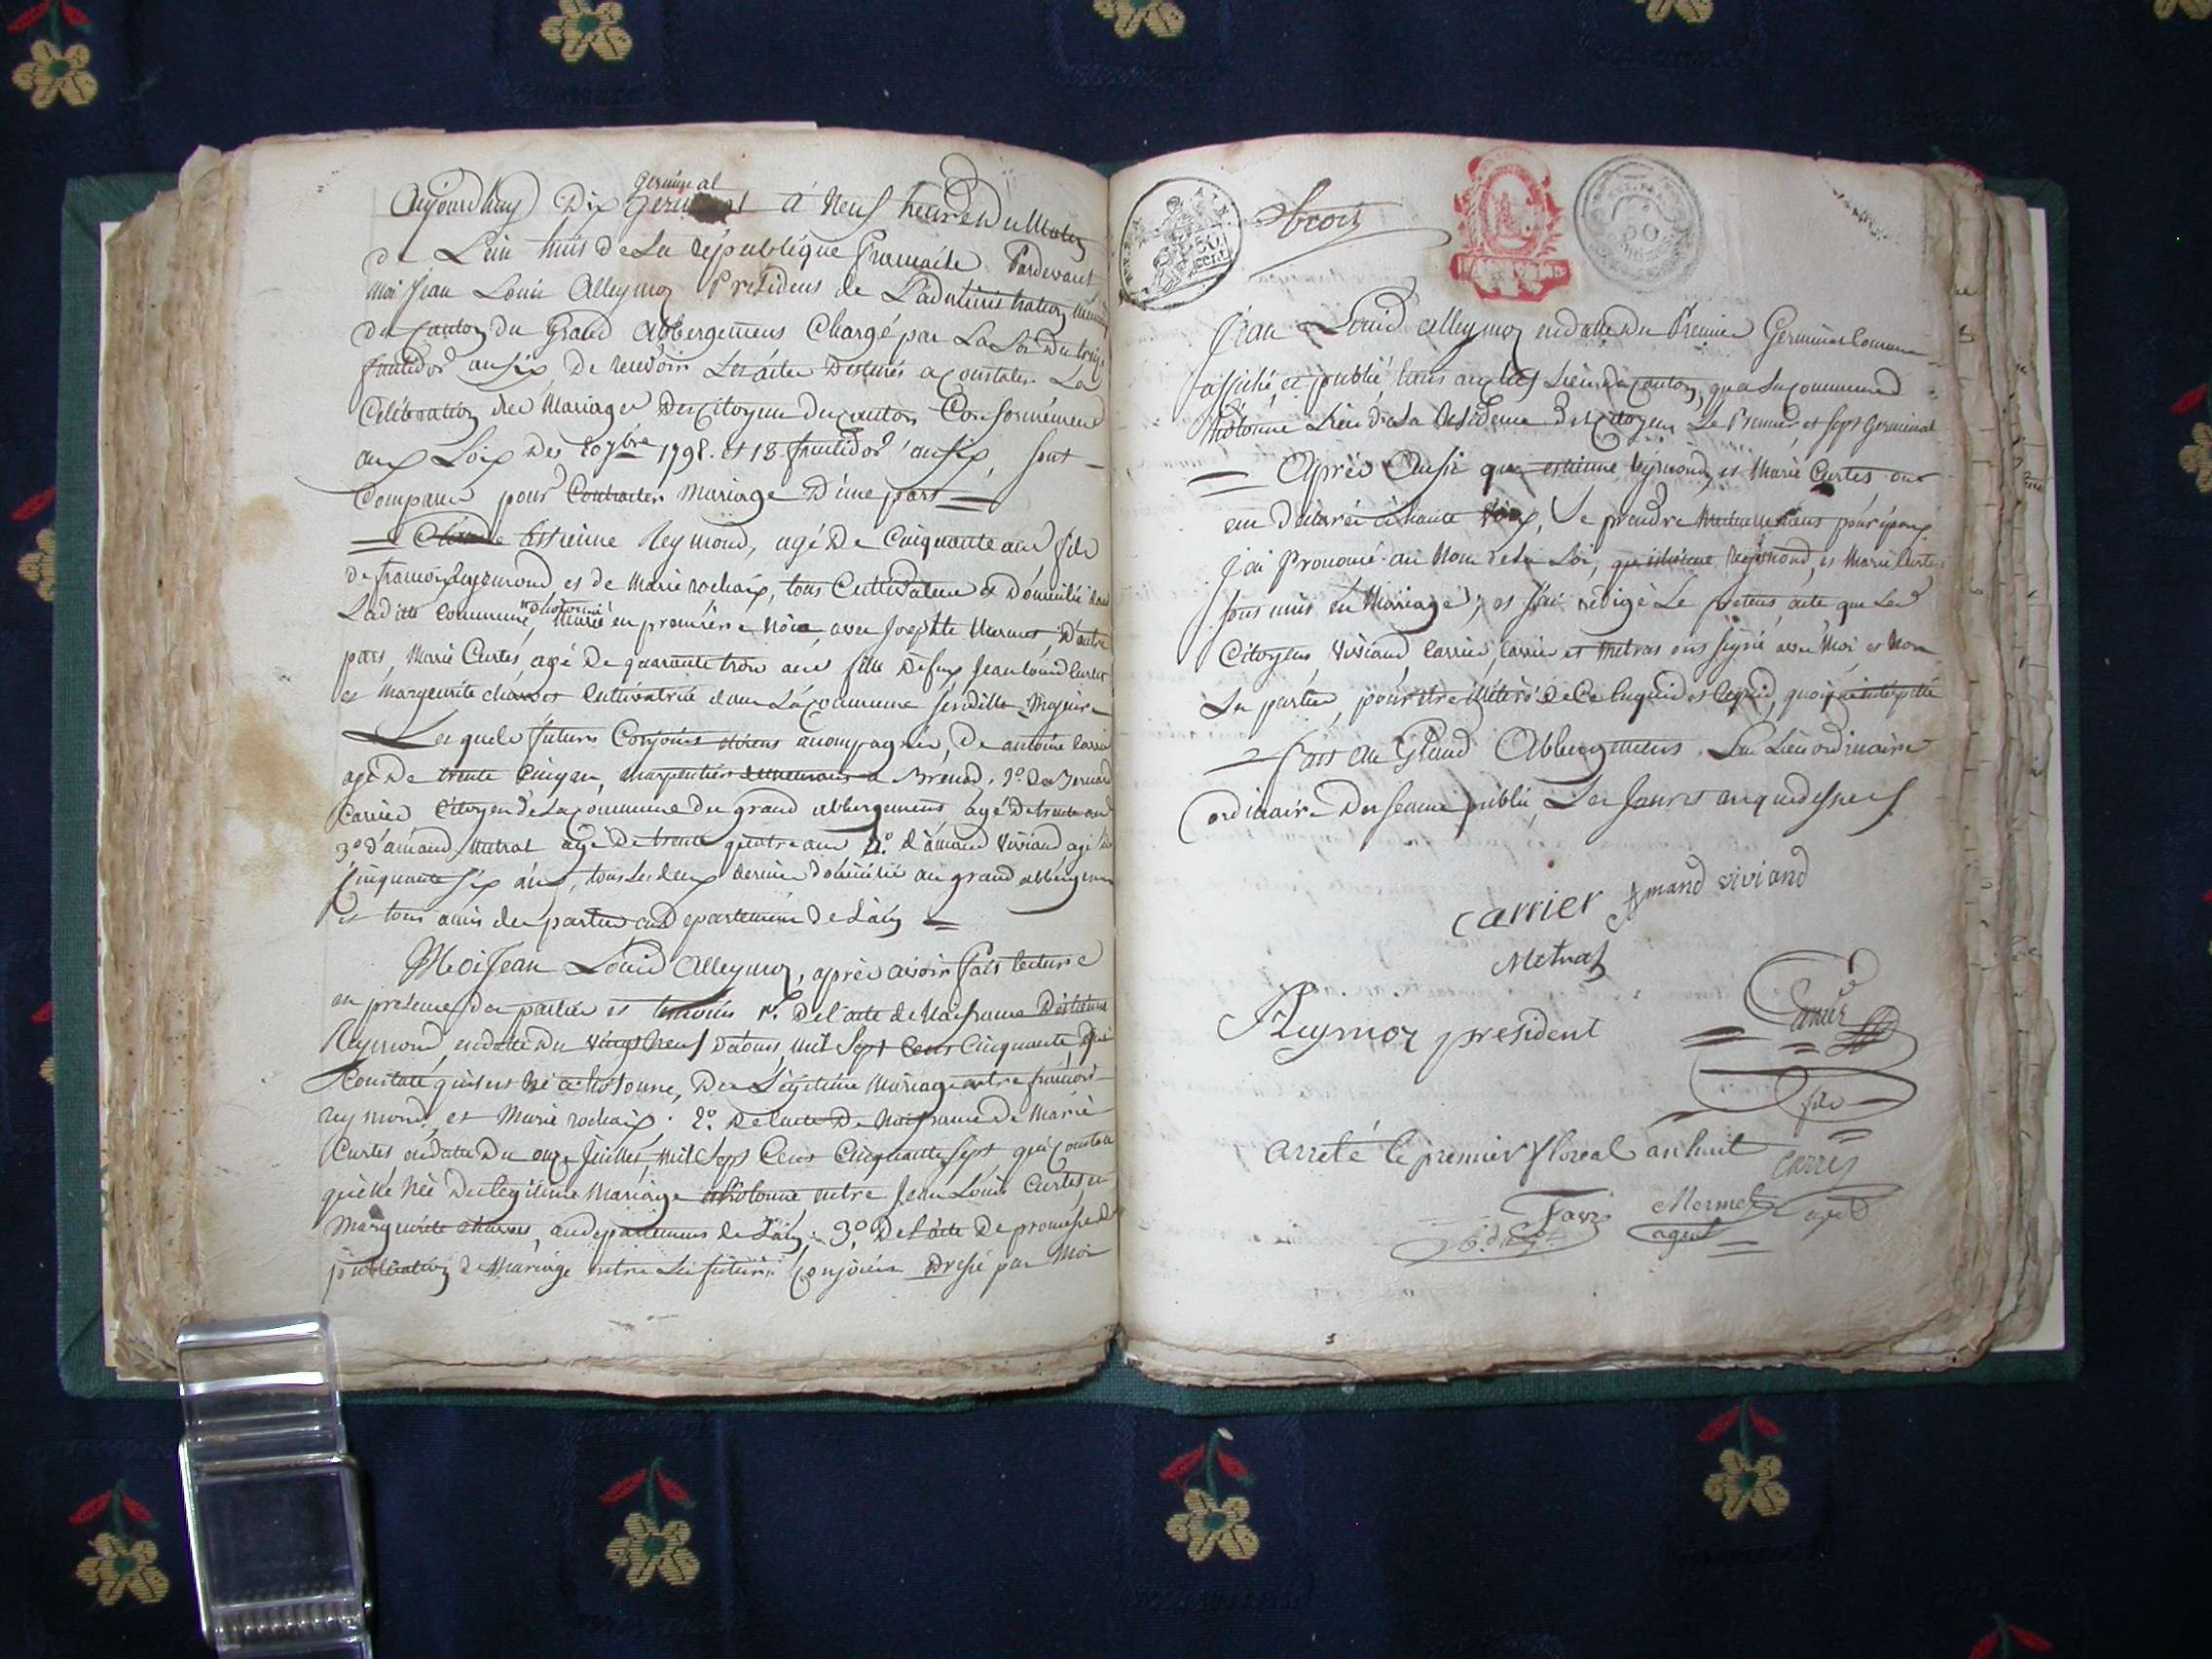 germinal
Aujourdhuy Dix à Neuf heures du Matin
de L'an huit de La république française Pardevant
moi Jean Louis Alleymoz Président de L'administration
du Canton du Grand abbergement Chargé par La Loi du treize
fructidor an six De recevoir Les actes destinés a constater La
Célébration des Mariages des Citoyens du canton Conformément
aux Loix des 20 7bre 1792. et 13 fructidor an six, sont
Comparus pour Contracter Mariage D'une part
Estienne Reymond, agé De Cinquante ans fils
de françois Reymond et de Marie rochaix, tous Cultivateurs & Domicilié dans
Laditte Commune, en première avec Josephte D'autre
part, Marie Curtet, agé De quarante trois ans fille Defux Jean Louis Curtet
et Margueritte Cultivatrice dans La Commune
Lesquels futurs Conjoints accompagnés, De antoine Carrier
agé De trente Cinq an, charpentier a Brénod, 2° De Bernard
Carrier Citoyen De La Commune du grand abbergement, agé De trente ans
3° d'amand Metrat agé De trente quatre ans 4.° d'amand Viviand agé de
Cinquante six ans, tous Les deux derniers domicilié au grand abbergement
et tous amis des parties au Departement de L'ain
Moi Jean Louis Alleymoz, après avoir fait lecture
en presence des parties et temoins 1.° De L'acte de Naissance D'estienne
Reymond, en datte Du vingt neuf mil Sept Cent Cinquante, qui
Constate qu'il est Né a hotonne, Du Légitime Mariage entre françois
reymond, et Marie rochaix. 2.° De L'acte De Naissance De Marie
Curtet en datte Du onze Juillet, mil Sept Cent Cinquante Sept qui Constate
qu'elle Née Du légitime Mariage a hotonne entre Jean Louis Curtet, et
Margueritte, au departement de L'ain. 3.° De L'acte De promesse de
publication de Mariage entre Les futurs Conjoints Dressé par Moi
50
cent
Jean Louis Alleymoz en datte Du Premier Germinal
affiché, et publié tant au chef Lieu de Canton, que a La commune d
hotonne Lieu de La Résidence Des Citoyens Le Premier et sept Germinal
Après Aussi que estienne Reymond, et Marie Curtet ont
eu déclaré à haute Voix, Se prendre Mutuellement pour époux
J'ai Prononcé au Nom de La Loi, que estienne Reymond, et Marie Curtet
sont unis en Mariage; et J'ai rédigé Le présent acte que Les
Citoyens Viviand Carrier, Carrier et Metrat ont signé avec Moi et Non
Les parties, pour être illétéré de Ce Enquis et Requis, quoique intérpellé
Fait au Grand Abbergement. Lieu ordinaire
ordinaire Des séance publié, Les Jours et an que dessus
carrier Amand viviand
Metrat
Carrier
Aleymoz president
fils
arrété le premier floreal an huit
Mermet
agent
agent